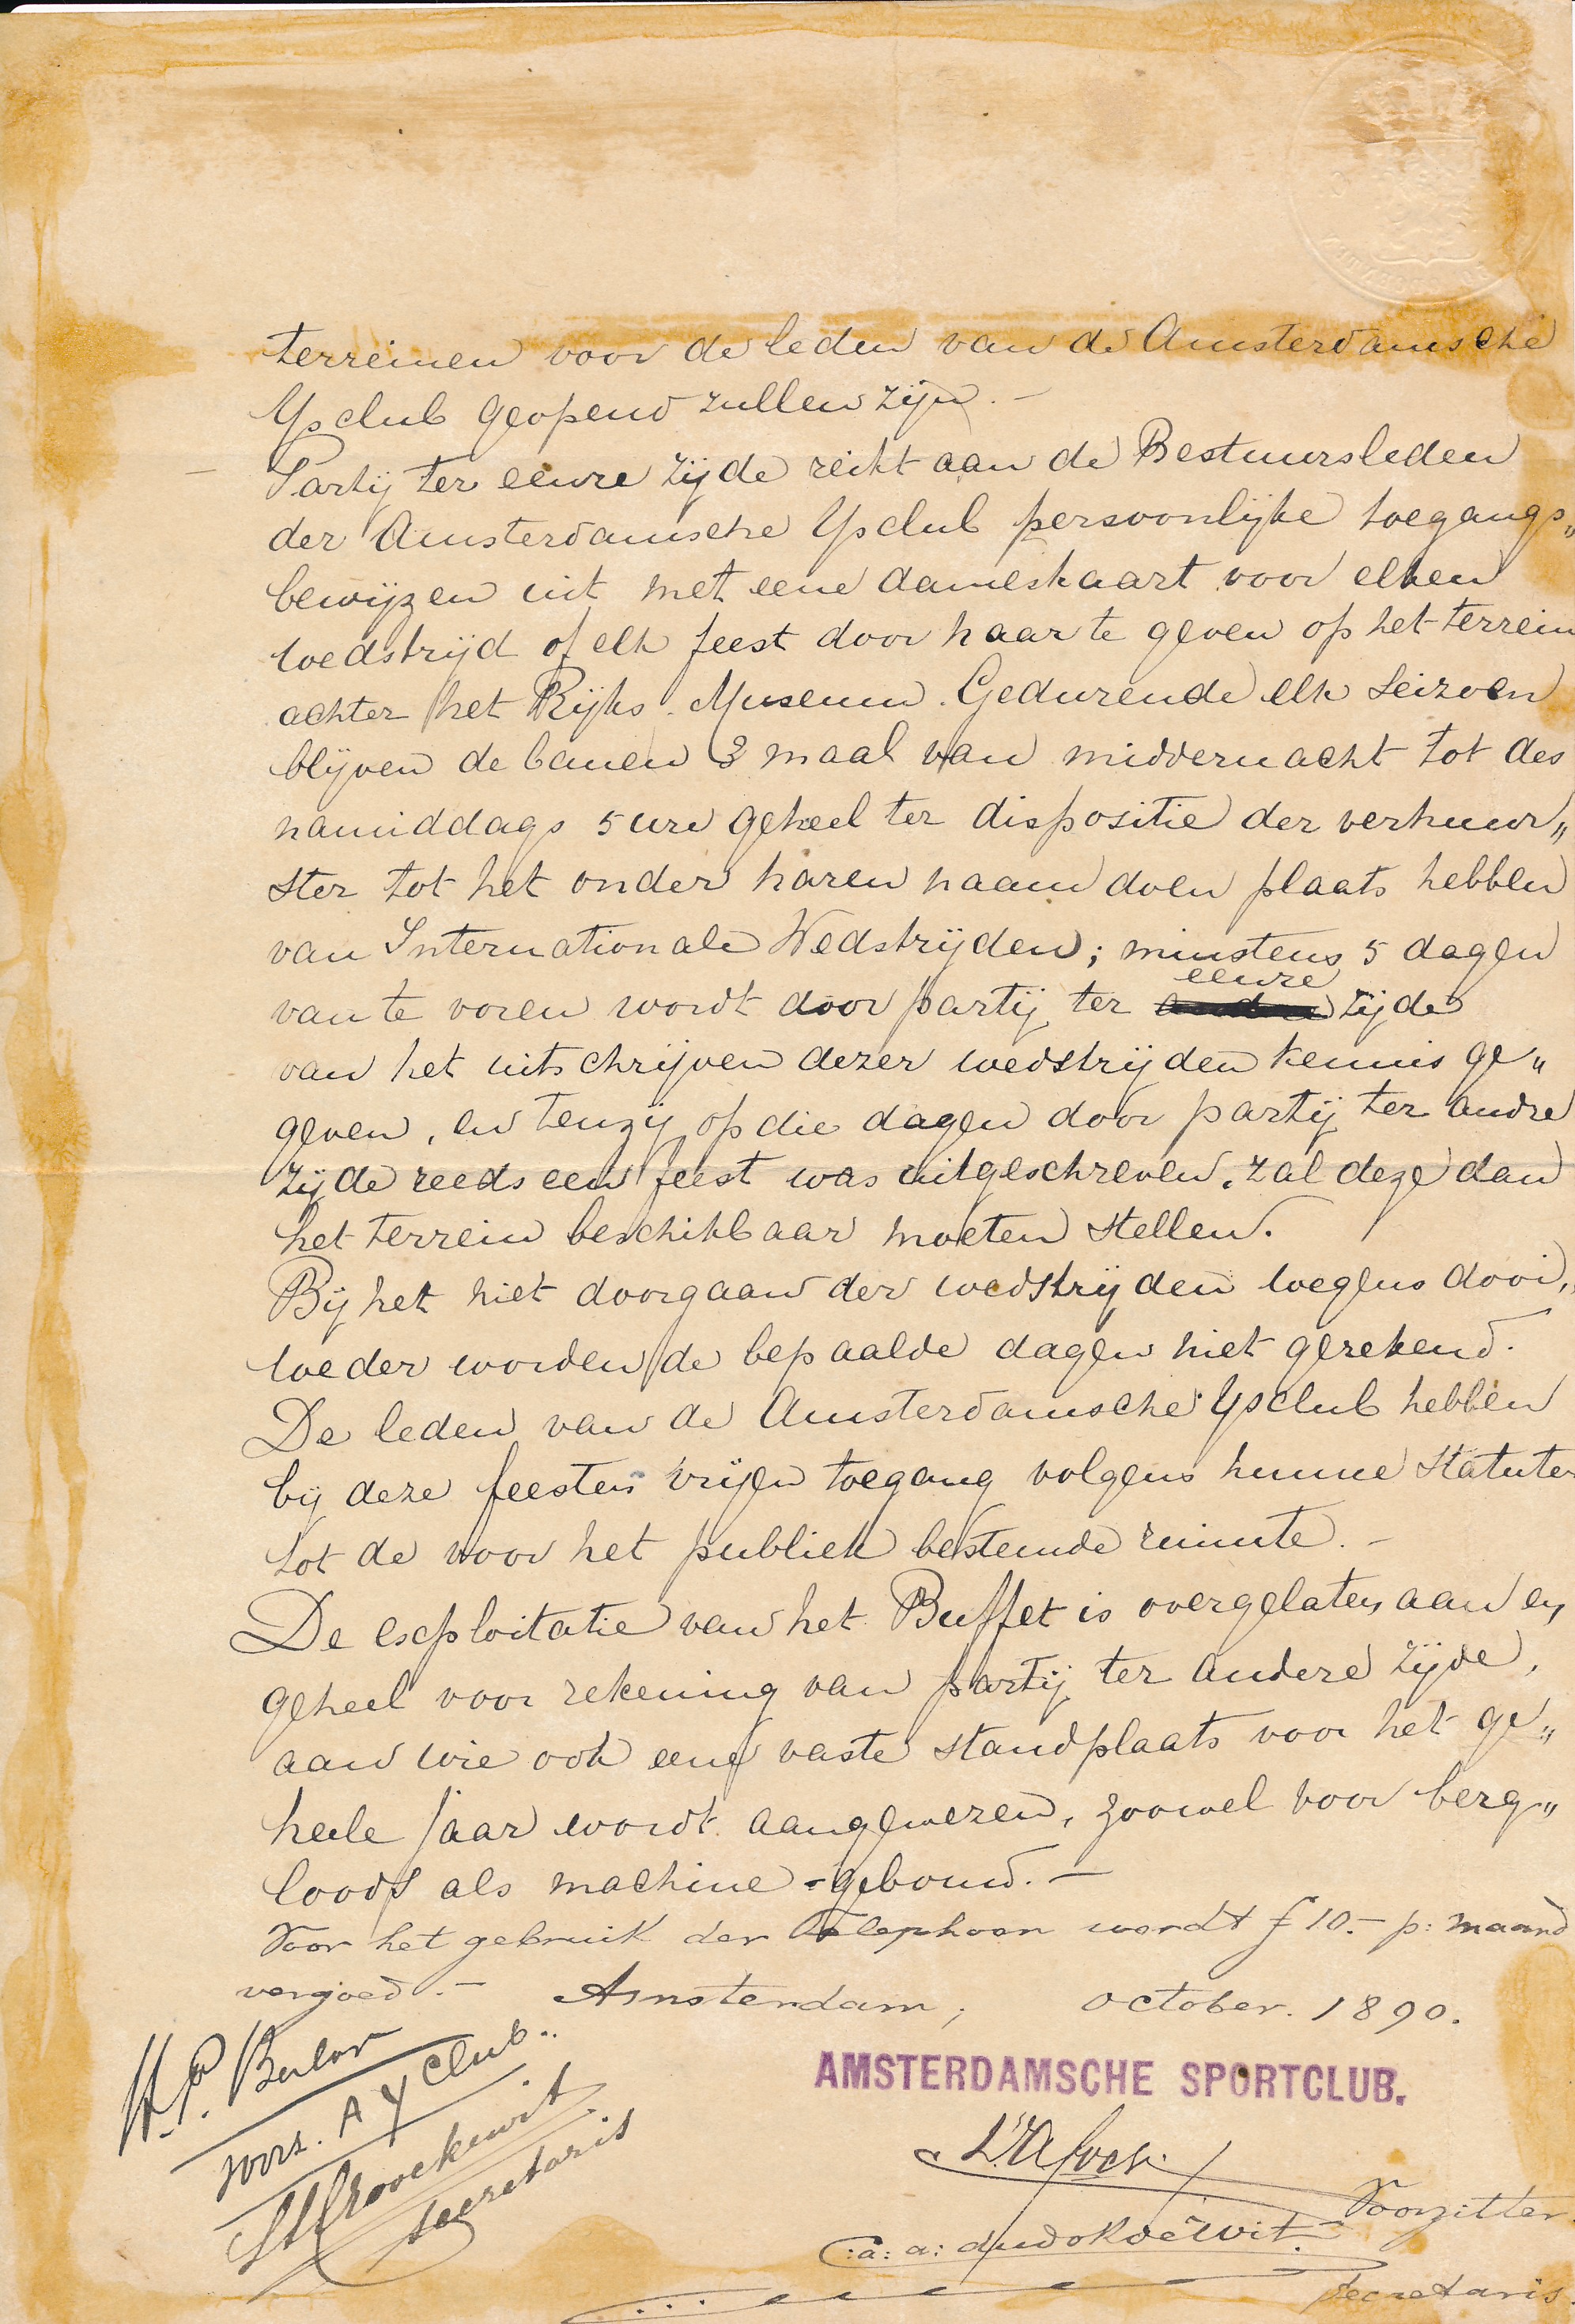 terreinen voor de leden van de Amsterdamsche
Ysclub geopend zullen zijn. –
– Partij ter eenre zijde reikt aan de Bestuursleden
der Amsterdamsche Ysclub persoonlijke toegangs„
bewijzen uit met eene dameskaart voor elken
wedstrijd of elk feest door haar te geven op het terrein
achter het Rijks-Museum. Gedurende elk seizoen
blijven de banen 3 maal van middernacht tot des
namiddags 5 ure geheel ter dispositie der verhuur„
ster tot het onder haren naam doen plaats hebben
van Internationale Wedstrijden; minstens 5 dagen
van te voren wordt door partij ter eenre zijde
van het uitschrijven dezer wedstrijden kennis ge„
geven, en tenzij op die dagen door partij ter andre
zijde reeds een feest was uitgeschreven, zal deze dan
het terrein beschikbaar moeten stellen.
Bij het niet doorgaan der wedstrijden wegens dooi„
weder worden de bepaalde dagen niet gerekend.
De leden van de Amsterdamsche Ysclub hebben
bij deze feesten vrijen toegang volgens hunne Statuten
tot de voor het publiek bestemde ruimte. –
De exploitatie van het Buffet is overgelaten aan en
geheel voor rekening van partij ter andere zijde,
aan wie ook eene vaste standplaats voor het ge„
heele jaar wordt aangewezen, zoowel voor berg„
loods als machine-gebouw. –
Voor het gebruik der Telephoon wordt f 10.– p: maand
vergoed. – Amsterdam, October. 1890.
AMSTERDAMSCHE SPORTCLUB.
voorz. A Y Club.
Secretaris
Voorzitter
Secretaris.